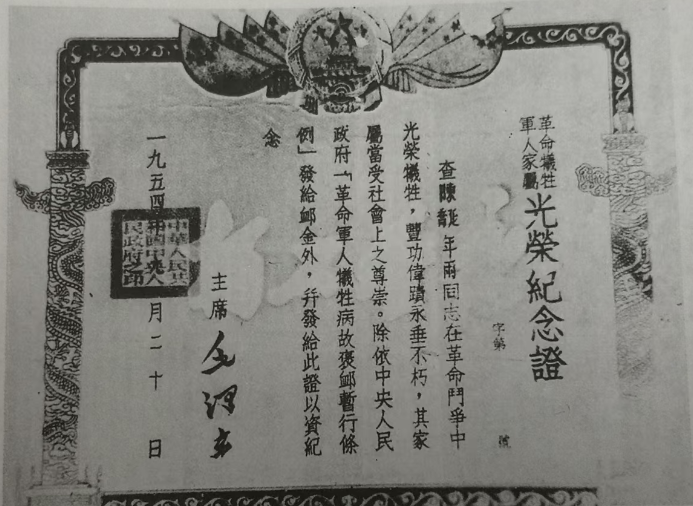 革命犧牲
軍人家屬
光榮紀念證
字第 號
查陳 年兩同志在革命鬥爭中
光榮犧牲，豐功偉蹟永垂不朽，其家
屬當受社會上之尊崇。除依中央人民
政府「革命軍人犧牲病故褒卹暫行條
例」發給卹金外，幷發給此證以資紀
念
主席 毛澤東
一九五四年 月二十 日
中華人民共
和國中央人
民政府之印